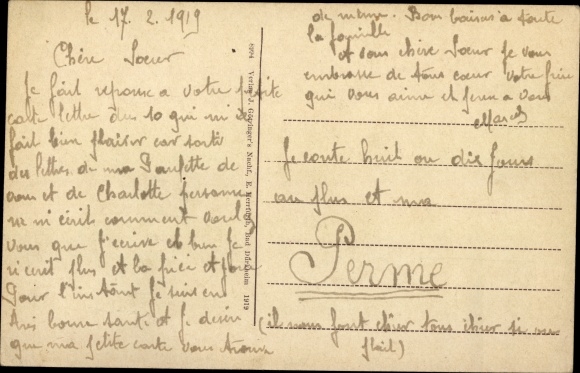 le 17. 2. 1919
Chère Soeur
Je fait reponse a votre petite
carte lettre du 10 qui m'a
fait bien plaisir car sorti
des lettres de ma Paulette de
vous et de Charlotte personne
ne m'écrit comment voulez
vous que j'écrive eh bien je
n'écrit plus et la fiée et
Pour l'instant je suis en
très bonne santé et je désire
que ma petite carte vous trouve
de meme. Bon baisers a toute
la famille
et vous chère Soeur je vous
embrasse de tous coeur votre frère
qui vous aime et pense a vous
Marcel
Je conte huit ou dix jours
au plus et ma
Perme
(ils nous font chier tous chier si
plait)
6994 Verlag J. Goppinger's Nachf., E. Herrfurth, Bad Dürkheim 1919